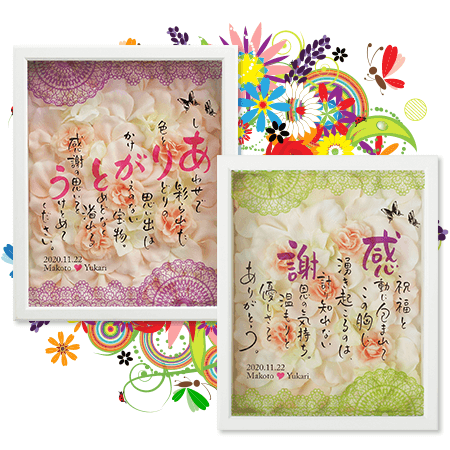 しあわせで
彩られた
色とりどりの
思い出は
かけがえのない
宝物。
とめどなく
溢れる
感謝の思いを
うけとめて
ください。
2020.11.22
Makoto ♥ Yukari
祝福と
感動に包まれて
この胸に
湧き起こるのは
計り知れない
謝恩の気持ち。
温もりと
優しさを
ありがとう。
2020.11.22
Makoto ♥ Yukari